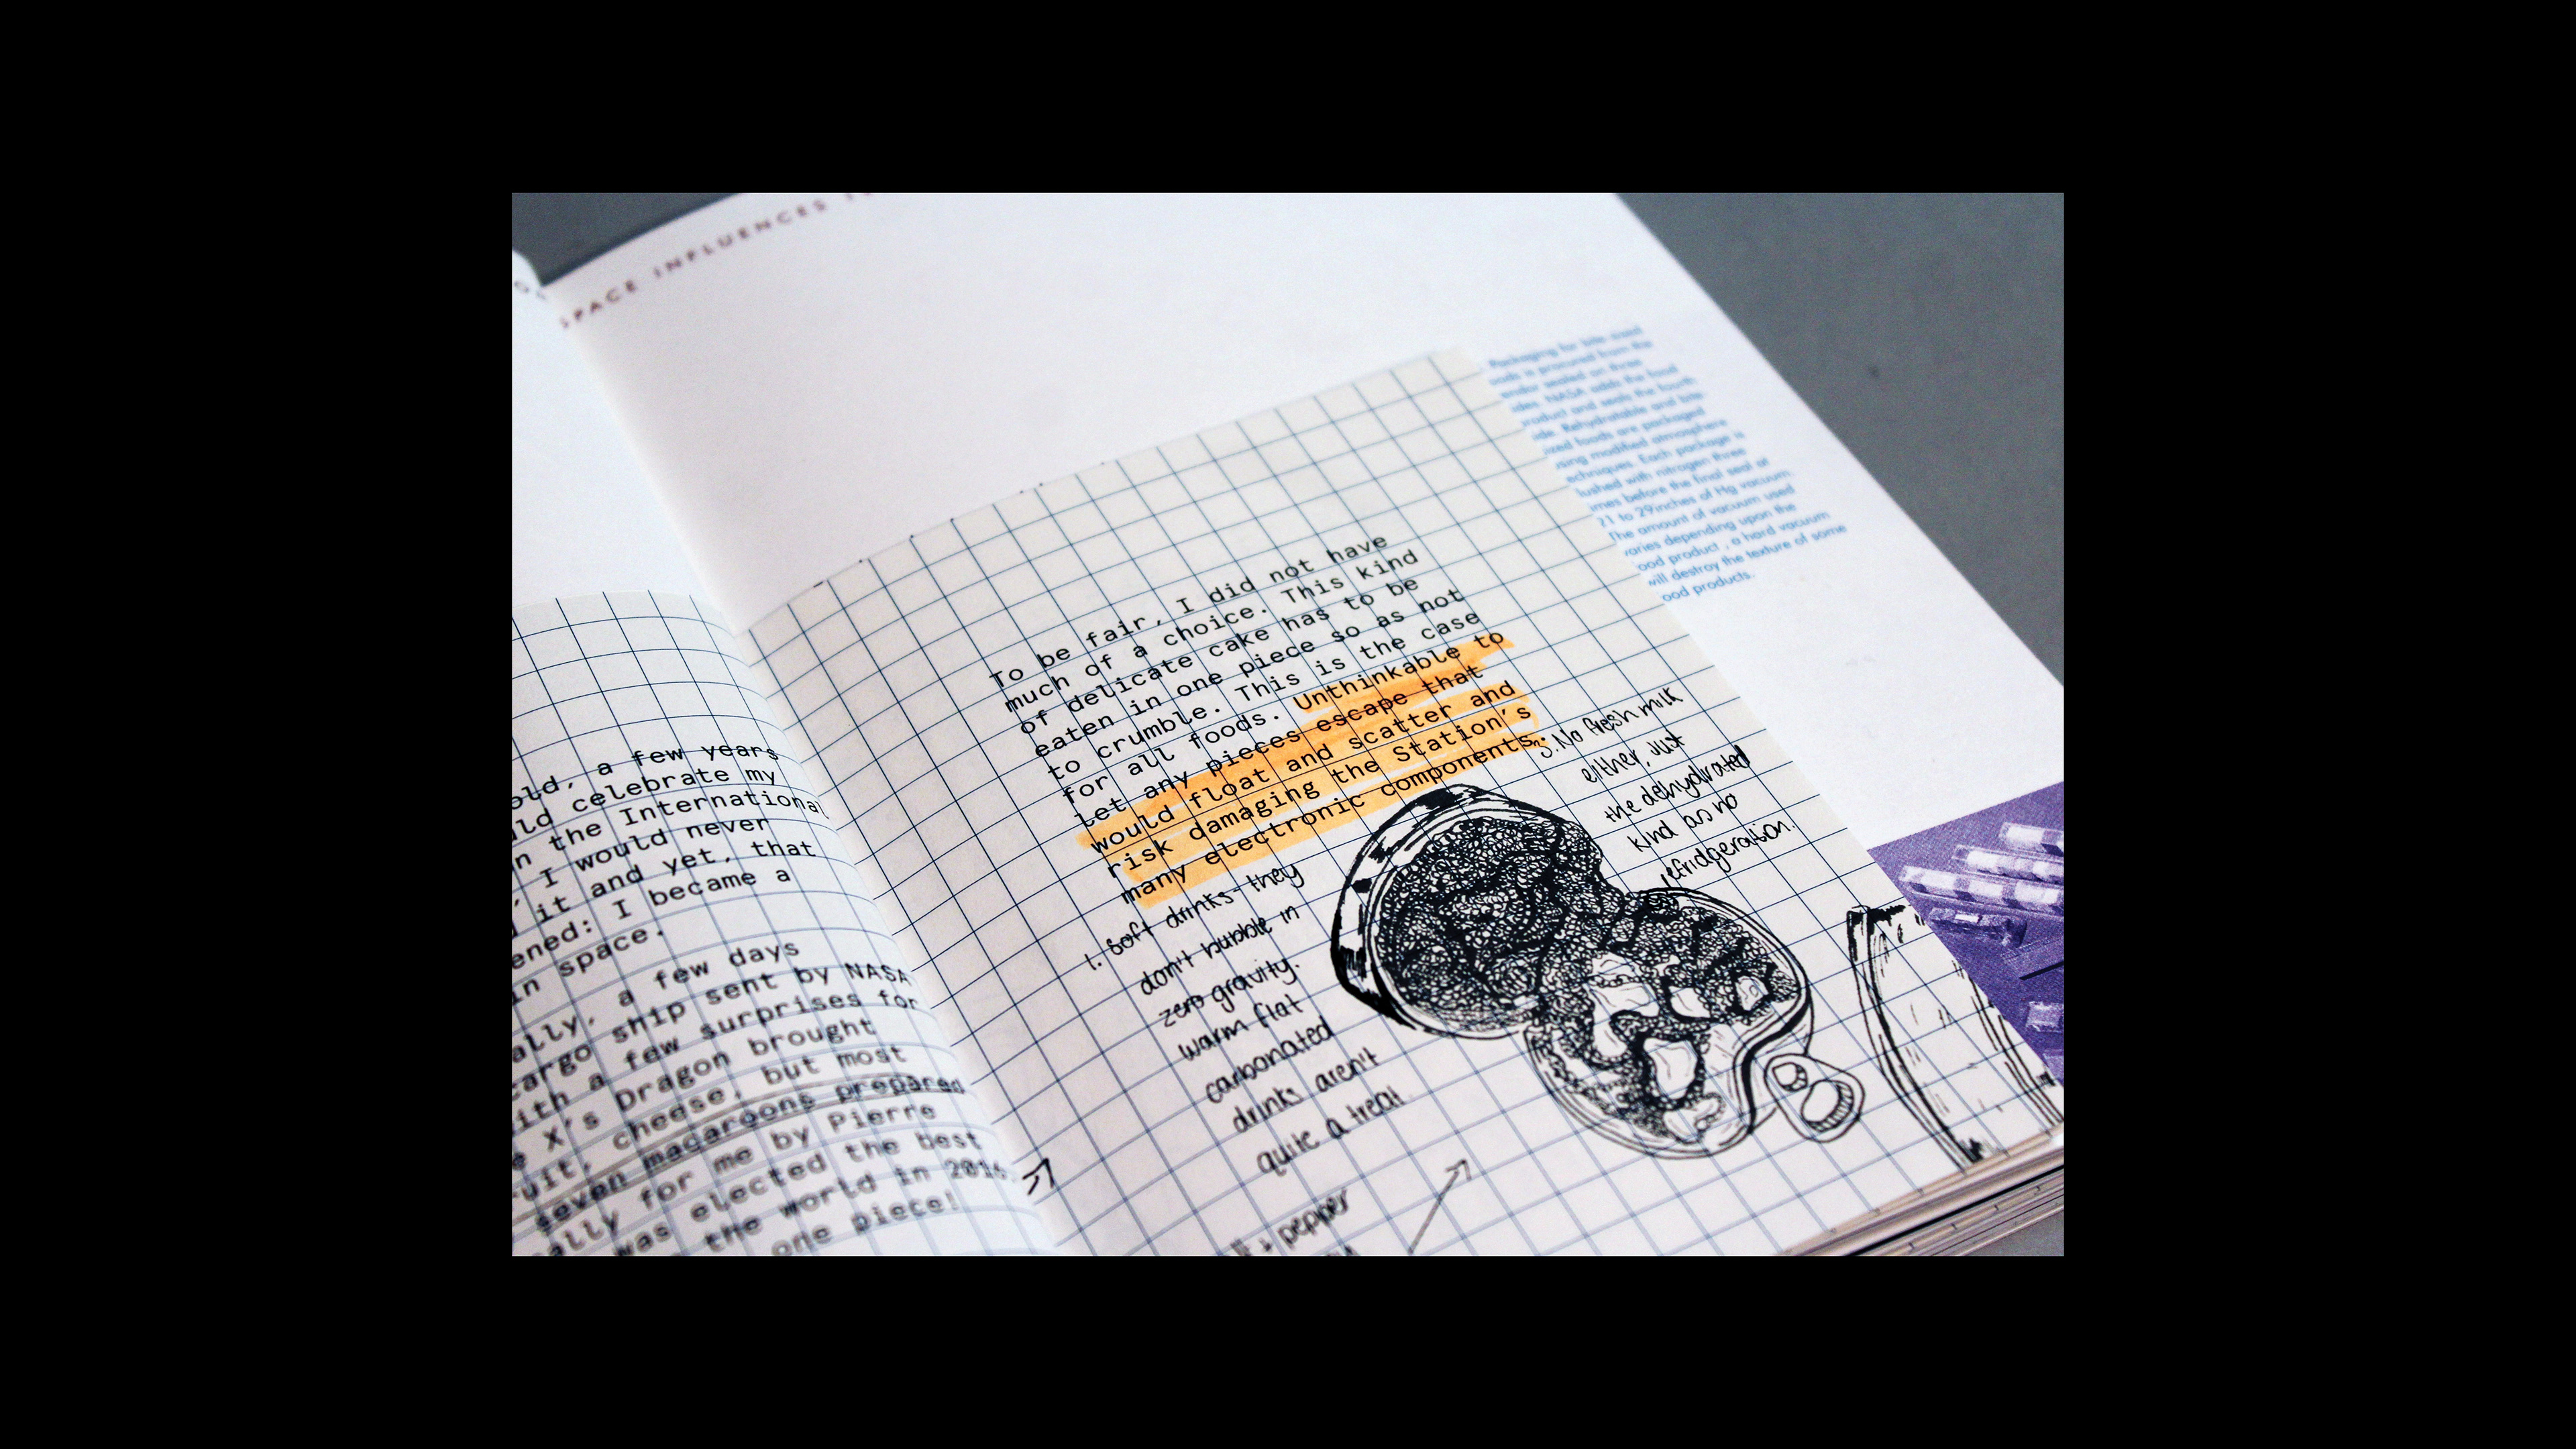 SPACE INFLUENCES
old, a few years
celebrate my
the International
I would never
it and yet, that
I became a
in space.
a few days
cargo ship sent by NASA
a few surprises for
X's Dragon brought
cheese, but most
seven macaroons prepared
for me by Pierre
was elected the best
the world in 2016.
one piece!
To be fair, I did not have
much of a choice. This kind
of delicate cake has to be
eaten in one piece so as not
to crumble. This is the case
for all foods. Unthinkable to
let any pieces escape that
would float and scatter and
risk damaging the Station's
many electronic components.
1. Soft drinks - they
don't bubble in
zero gravity.
warm flat
carbonated
drinks aren't
quite a treat
pepper
3. No fresh milk
either, just
the dehydrated
kind as no
refridgeration.
Packaging for bite sized
is procured from the
sealed on three
NASA adds the food
product and seals the fourth
Rehydratable and bite
foods are packaged
using modified atmosphere
techniques. Each package is
flushed with nitrogen three
times before the final seal at
21 to 29inches of Hg vacuum
The amount of vacuum used
varies depending upon the
ood product , a hard vacuum
will destroy the texture of some
ood products.